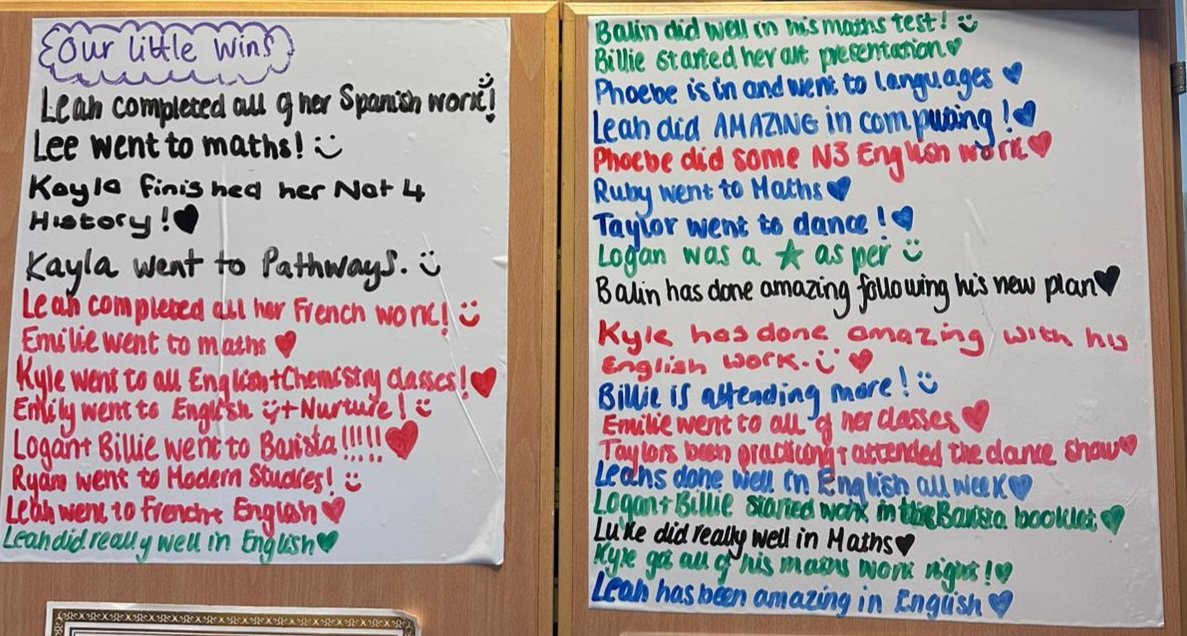 Our little wins
Leah completed all of her Spanish work!
Lee went to maths!
Kayla finished her Nat 4
History!
Kayla went to Pathways.
Leah completed all her French work!
Emilie went to maths
Kyle went to all English+Chemistry classes!
Emily went to English + Nurture!
Logan+ Billie went to Barista!!!!!
Ryan went to Modern Studies!
Leah went to French+ English
Leah did really well in English
Balin did well in his maths test!
Billie started her art presentation
Phoebe is in and went to languages
Leah did AMAZING in computing!
Phoebe did some N3 English work
Ruby went to Maths
Taylor went to dance!
Logan was a ★ as per
Balin has done amazing following his new plan
Kyle has done amazing with his
English work.
Billie is attending more!
Emilie went to all of her classes
Taylors been practicing+ attended the dance show
Leahs done well in English all week
Logan+ Billie started work in the Barista booklet
Luke did really well in Maths
Kyle got all of his maths work right!
Leah has been amazing in English